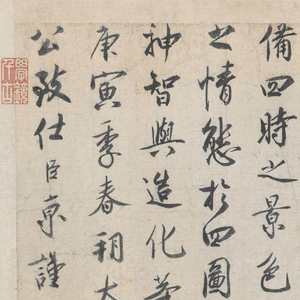 備四時之景色
之情態於四圖
神智與造化等
庚寅季春朔太
公致仕臣京謹